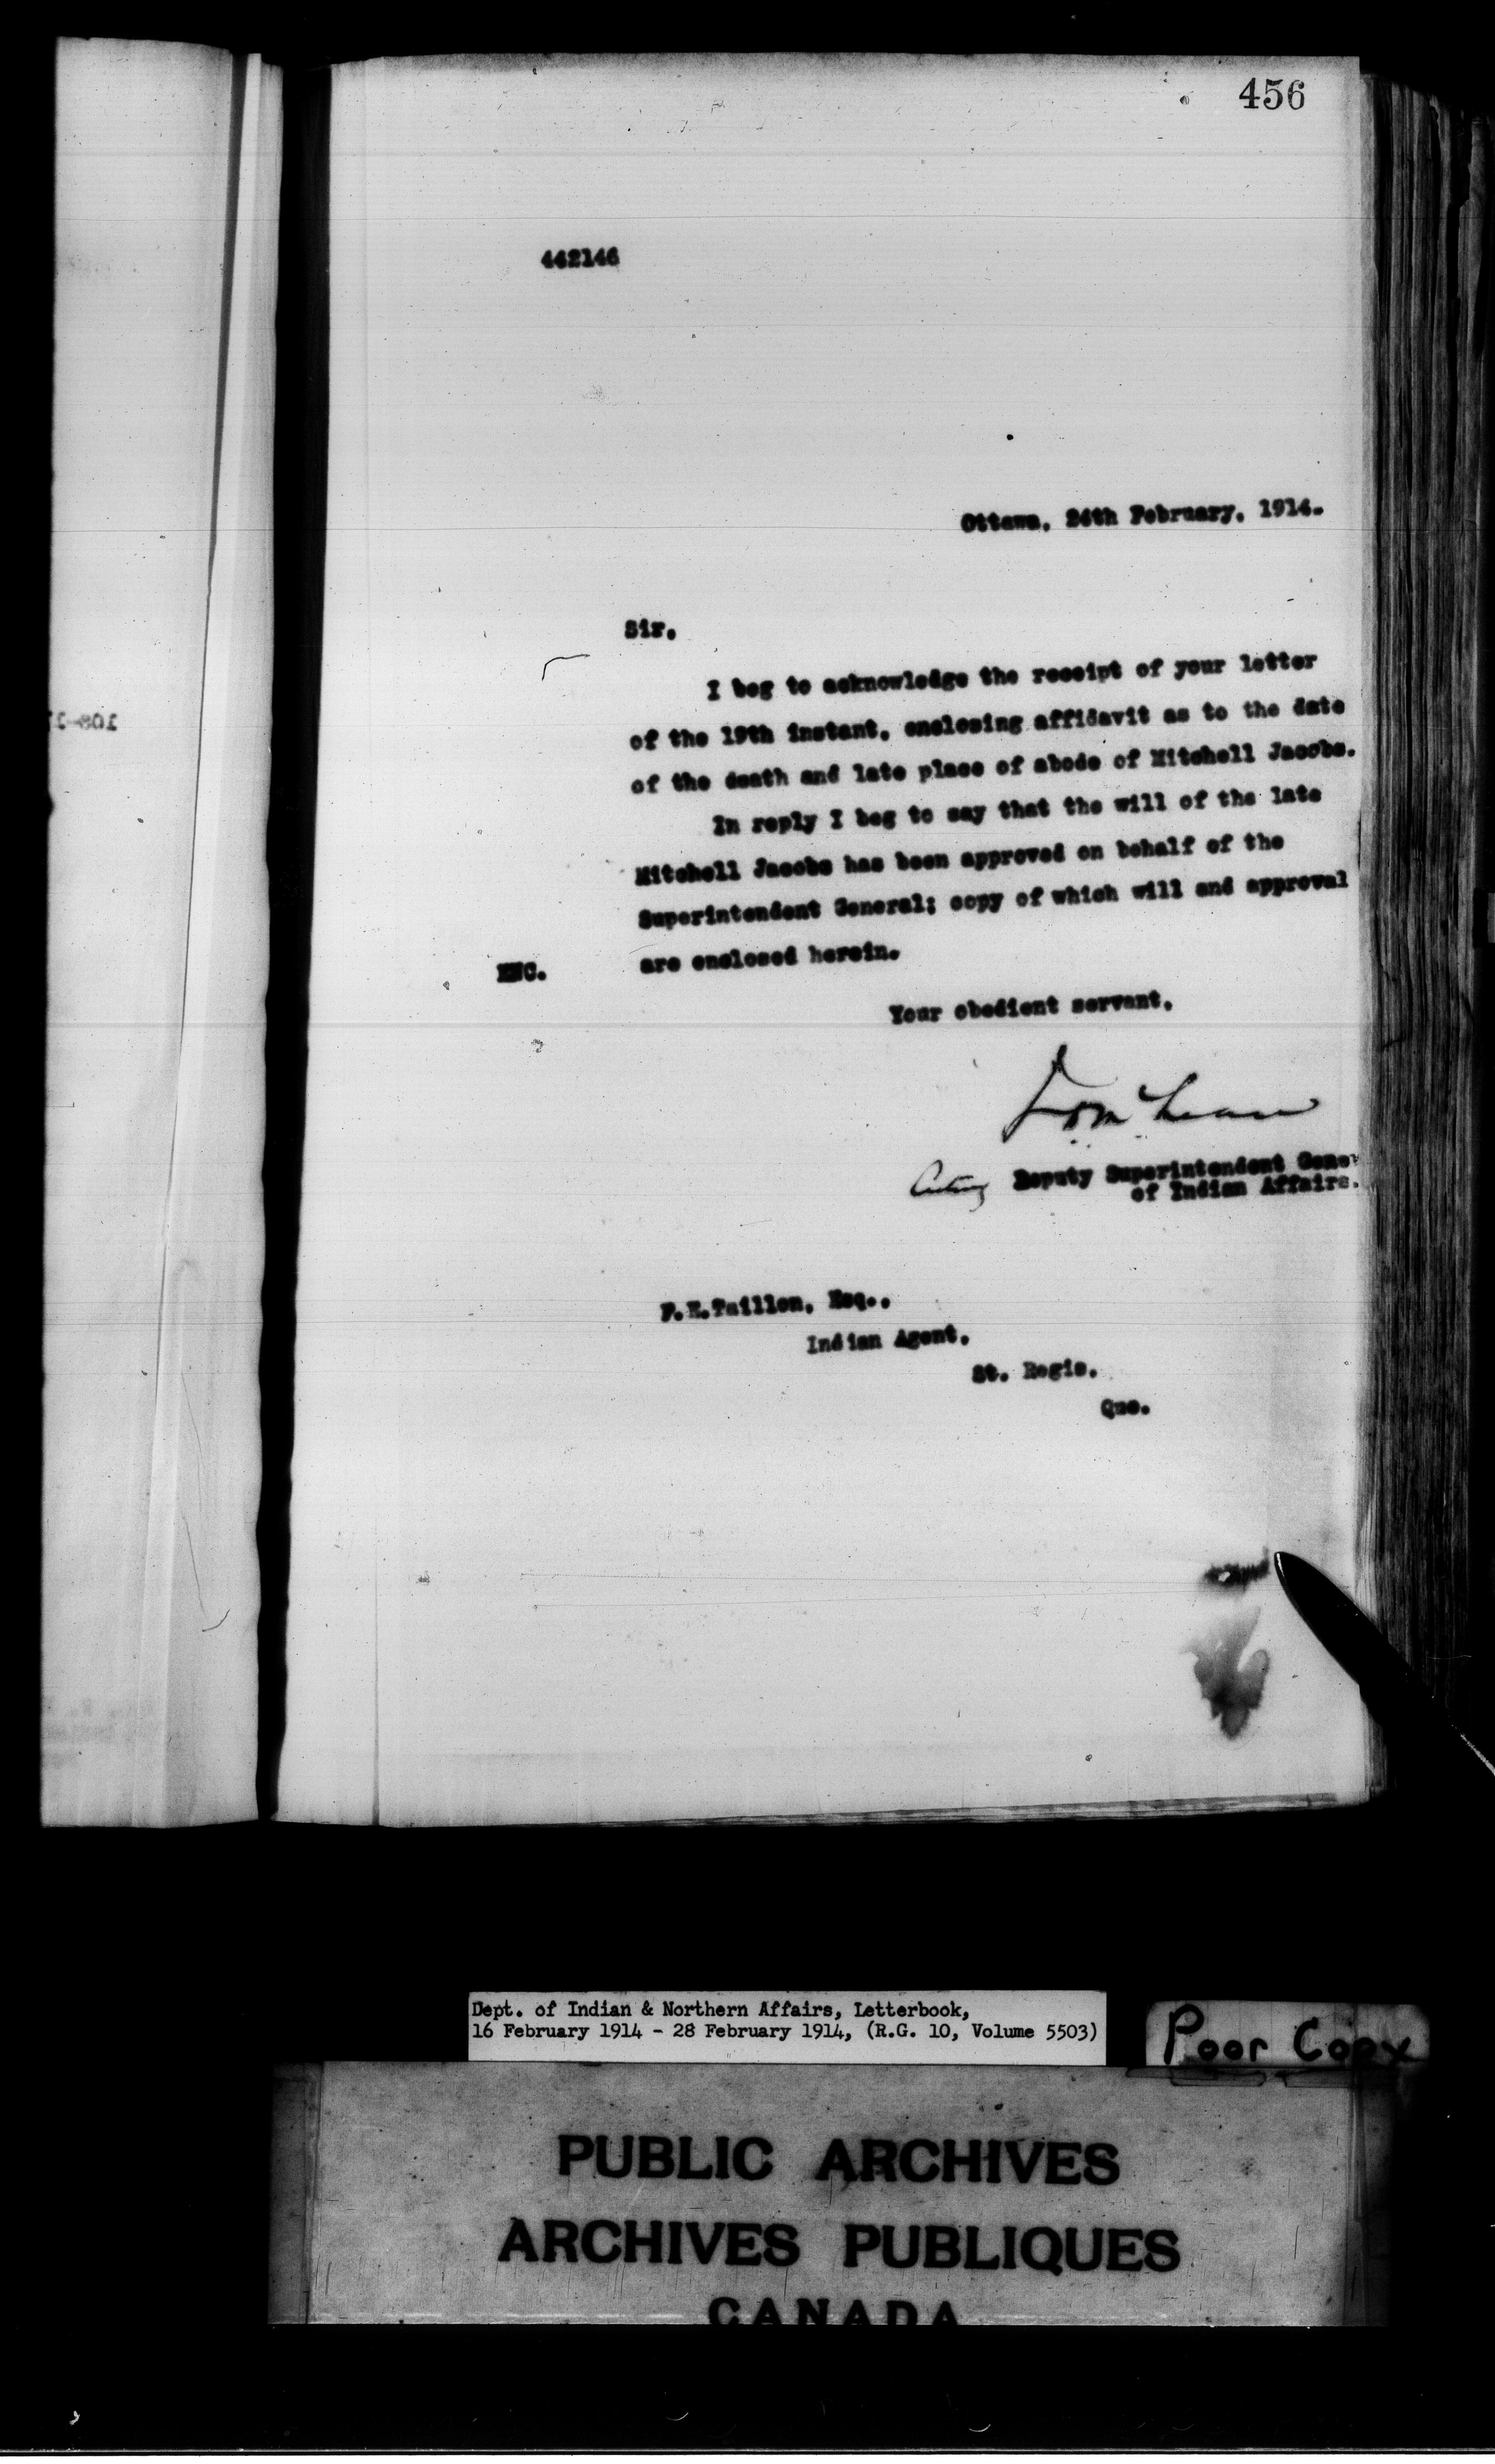 456
442146
Ottawa, 24th February, 1914.
Sir,
I beg to acknowledge the receipt of your letter
of the 19th instant, enclosing affidavit as to the date
of the death and late place of abode of Mitchell Jacobs.
In reply I beg to say that the will of the late
Mitchell Jacobs has been approved on behalf of the
Superintendent General; copy of which will and approval
ENC. are enclosed herein.
Your obedient servant,
Acting Deputy Superintendent Gene
of Indian Affairs.
F.E.Taillon, Esq.,
Indian Agent,
St. Regis,
Que.
Dept. of Indian & Northern Affairs, Letterbook,
16 February 1914 - 28 February 1914, (R.G. 10, Volume 5503)
Poor Copy
PUBLIC ARCHIVES
ARCHIVES PUBLIQUES
CANADA